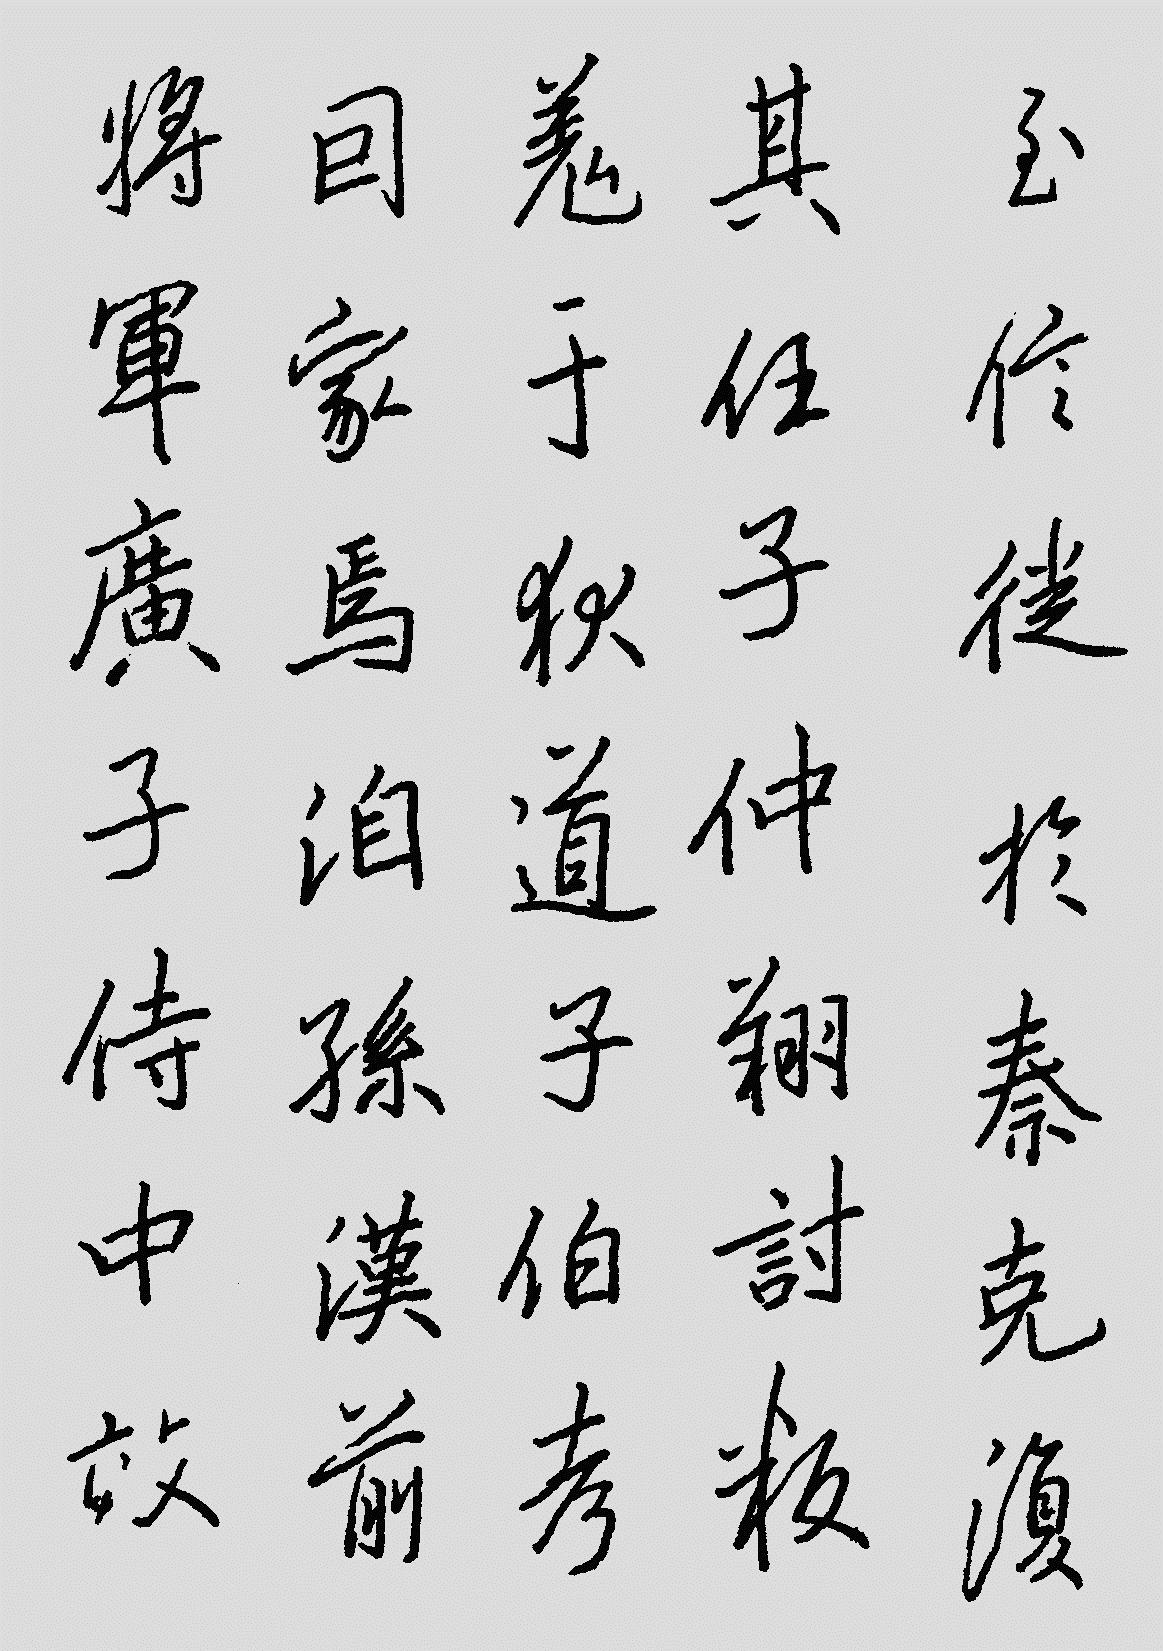 至信徙於秦克復
其任子仲翔討叛
羌于狄道子伯考
回家焉洎孫漢前
將軍廣子侍中敢